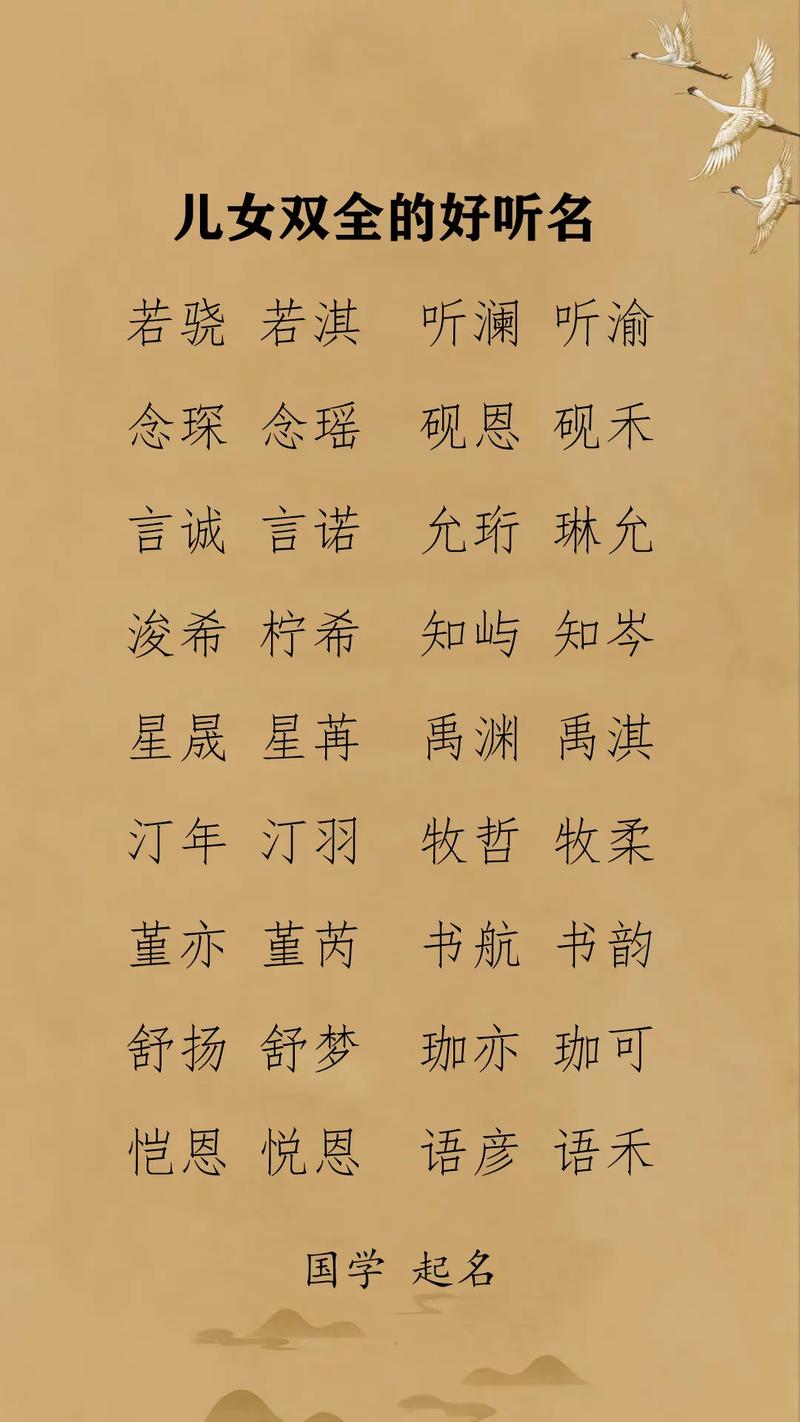 儿女双全的好听名
若骁 若淇 听澜 听渝
念琛 念瑶 砚恩 砚禾
言诚 言诺 允珩 琳允
浚希 柠希 知屿 知岑
星晟 星苒 禹渊 禹淇
汀年 汀羽 牧哲 牧柔
堇亦 堇芮 书航 书韵
舒扬 舒梦 珈亦 珈可
恺恩 悦恩 语彦 语禾
国学 起名